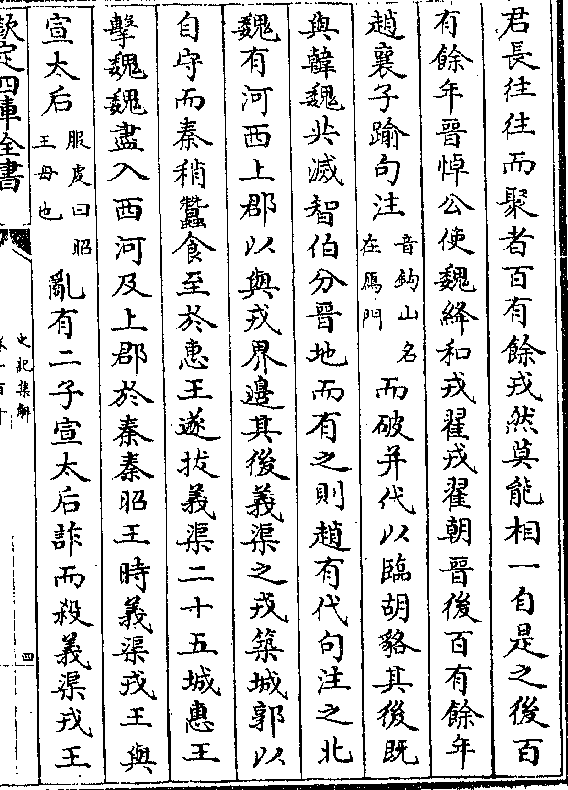 君長往往而聚者百有餘戎然莫能相一自是之後百
有餘年晉悼公使魏絳和戎翟戎翟朝晉後百有餘年
趙襄子踰句注音鈎山名在鴈門而破并代以臨胡貉其後既
與韓魏共滅智伯分晉地而有之則趙有代句注之北
魏有河西上郡以與戎界邊其後義渠之戎築城郭以
自守而秦稍蠶食至於惠王遂拔義渠二十五城惠王
擊魏魏盡入西河及上郡於秦秦昭王時義渠戎王與
宣太后服虔曰昭王母也亂有二子宣太后詐而殺義渠戎王
欽定四庫全書
史記集解
卷一百十
四